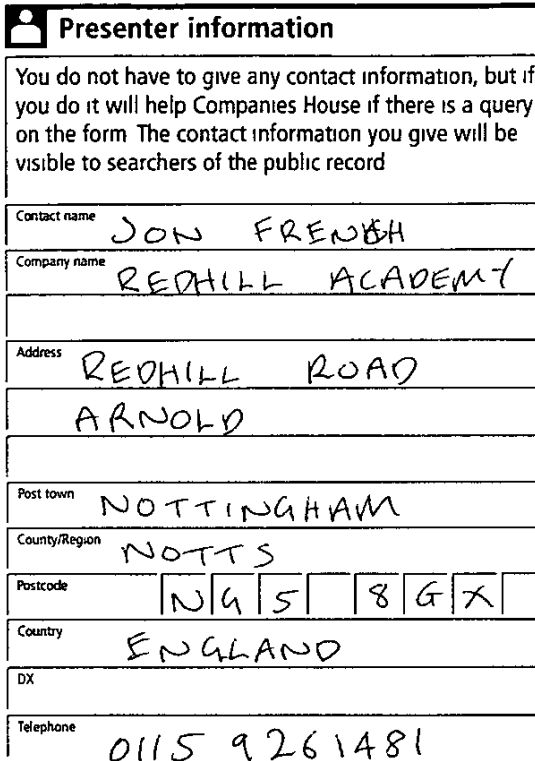 Presenter information
You do not have to give any contact information, but if
you do it will help Companies House if there is a query
on the form The contact information you give will be
visible to searchers of the public record
Contact name JON FRENCH
Company name REDHILL ACADEMY
Address REDHILL ROAD
ARNOLD
Post town NOTTINGHAM
County/Region NOTTS
Postcode NG5 8GX
Country ENGLAND
DX
Telephone 0115 9261481